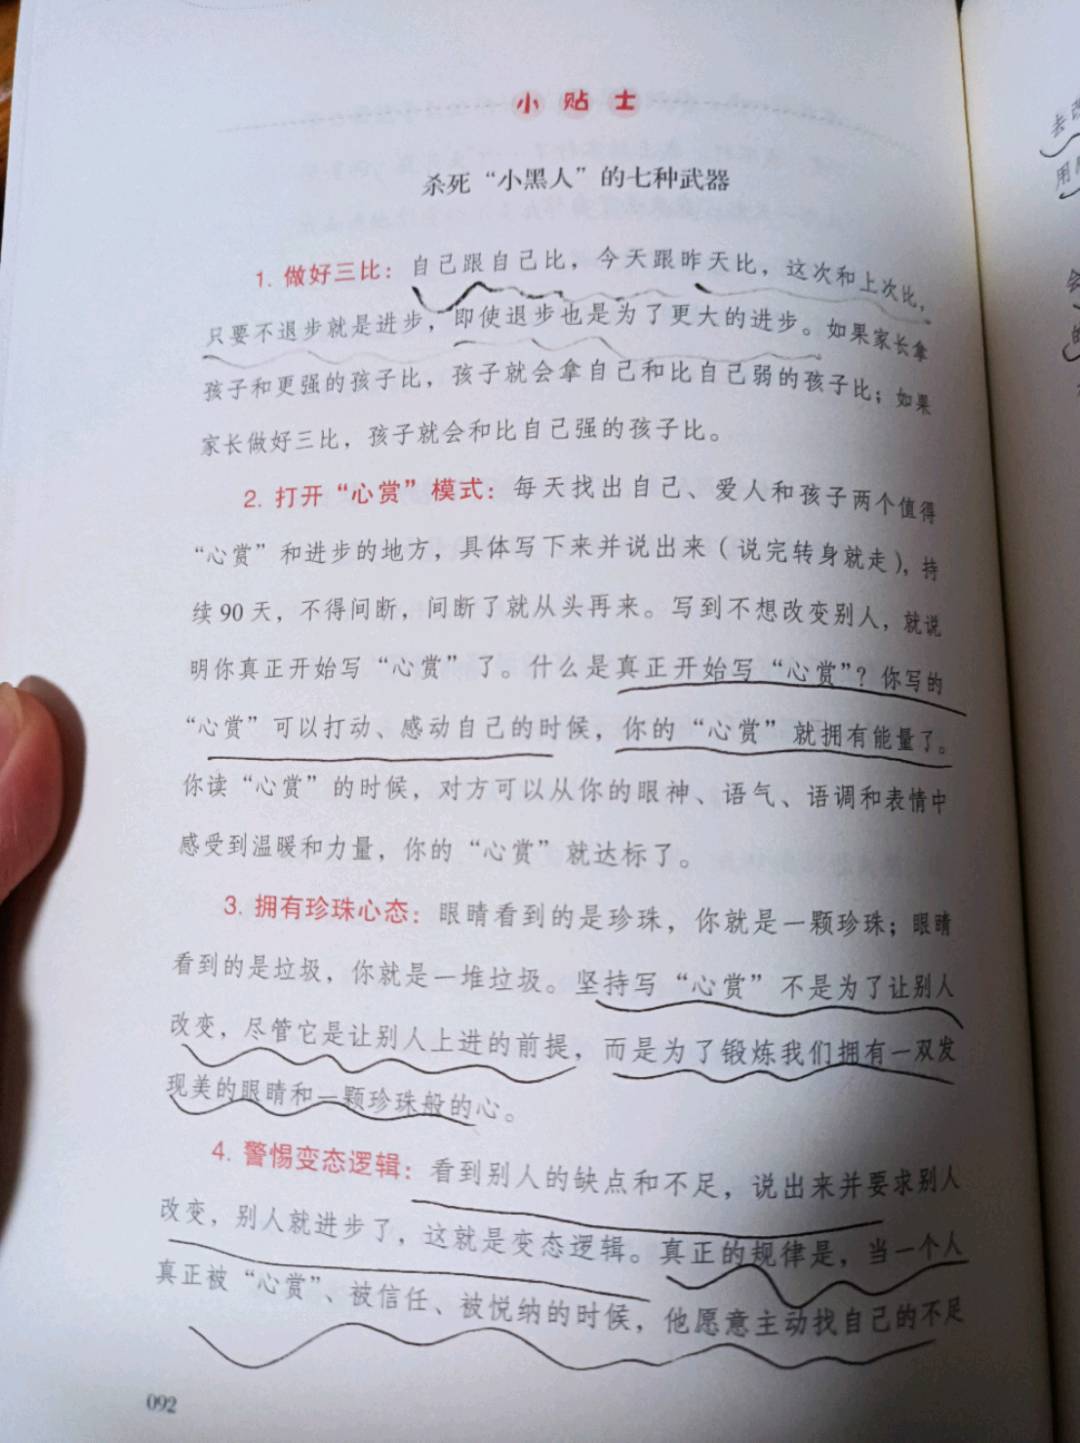 小贴士
杀死“小黑人”的七种武器
1. 做好三比：自己跟自己比，今天跟昨天比，这次和上次比，
只要不退步就是进步，即使退步也是为了更大的进步。如果家长拿
孩子和更强的孩子比，孩子就会拿自己和比自己弱的孩子比；如果
家长做好三比，孩子就会和比自己强的孩子比。
2. 打开“心赏”模式：每天找出自己、爱人和孩子两个值得
“心赏”和进步的地方，具体写下来并说出来（说完转身就走），持
续90天，不得间断，间断了就从头再来。写到不想改变别人，就说
明你真正开始写“心赏”了。什么是真正开始写“心赏”？你写的
“心赏”可以打动、感动自己的时候，你的“心赏”就拥有能量了。
你读“心赏”的时候，对方可以从你的眼神、语气、语调和表情中
感受到温暖和力量，你的“心赏”就达标了。
3. 拥有珍珠心态：眼睛看到的是珍珠，你就是一颗珍珠；眼睛
看到的是垃圾，你就是一堆垃圾。坚持写“心赏”不是为了让别人
改变，尽管它是让别人上进的前提，而是为了锻炼我们拥有一双发
现美的眼睛和一颗珍珠般的心。
4. 警惕变态逻辑：看到别人的缺点和不足，说出来并要求别人
改变，别人就进步了，这就是变态逻辑。真正的规律是，当一个人
真正被“心赏”、被信任、被悦纳的时候，他愿意主动找自己的不足
092
去
用